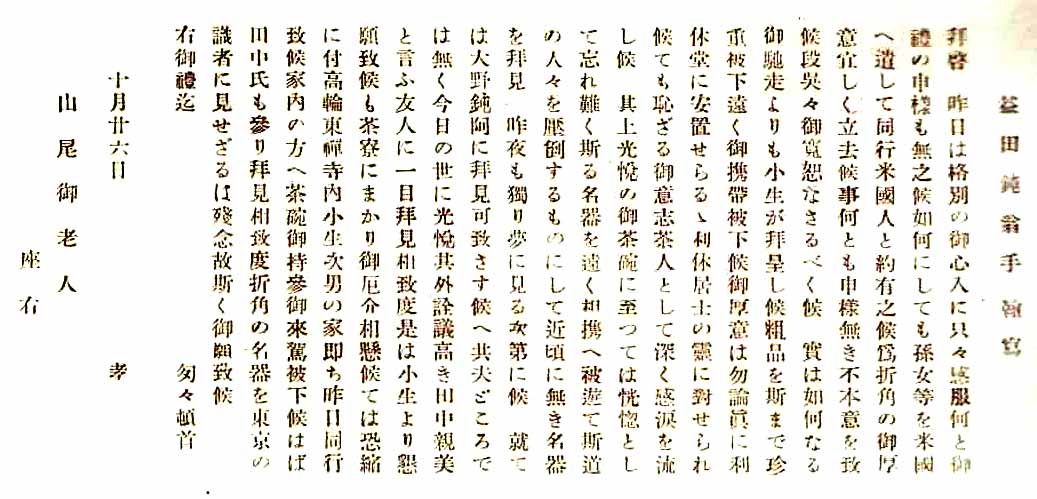 益田鈍翁手翰寫
拜啓　昨日は格別の御心入に只々感服何と御
禮の申樣も無之候如何にしても孫女等を米國
へ遣して同行米國人と約有之候爲折角の御厚
意宜しく立去候事何とも申樣無き不本意を致
候段吳々御寬恕なさるべく候　實は如何なる
御馳走よりも小生が拜呈し候粗品を斯まで珍
重被下遠く御携帶被下候御厚意は勿論眞に利
休堂に安置せらるゝ利休居士の靈に對せられ
候ても恥ざる御意志茶人として深く感淚を流
し候　其上光悅の御茶碗に至つては恍惚とし
て忘れ難く斯る名器を遠く相携へ被遊て斯道
の人々を壓倒するものにして近頃に無き名器
を拜見　昨夜も獨り夢に見る次第に候　就て
は大野鈍阿に拜見可致さす候へ共夫どころで
は無く今日の世に光悅其外詮議高き田中親美
と言ふ友人に一目拜見相致度是は小生より懇
願致候も茶寮にまかり御厄介相懸候ては恐縮
に付高輪東禪寺內小生次男の家卽ち昨日同行
致候家內の方へ茶碗御持參御來駕被下候はば
田中氏も參り拜見相致度折角の名器を東京の
識者に見せざるは殘念故斯く御願致候
右御禮迄　　　　　　　　　匆々頓首
十月廿六日　　　　　　　　孝
山尾御老人
座右